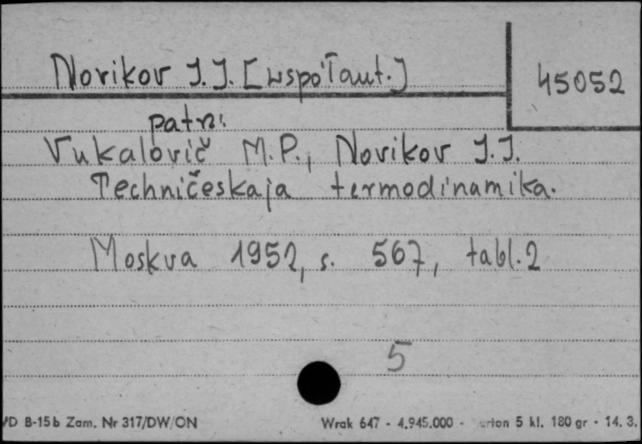 Novikov J.J. [współaut.]
45052
patrz:
Vukalovič M.P., Novikov J.J.
Techničeskaja termodinamika.
Moskva 1952, s. 567, tabl. 2
5
B-15b Zam. Nr 317/DW/ON
Wrak 647 - 4.945.000 - 5 kl. 180 gr - 14. 3.